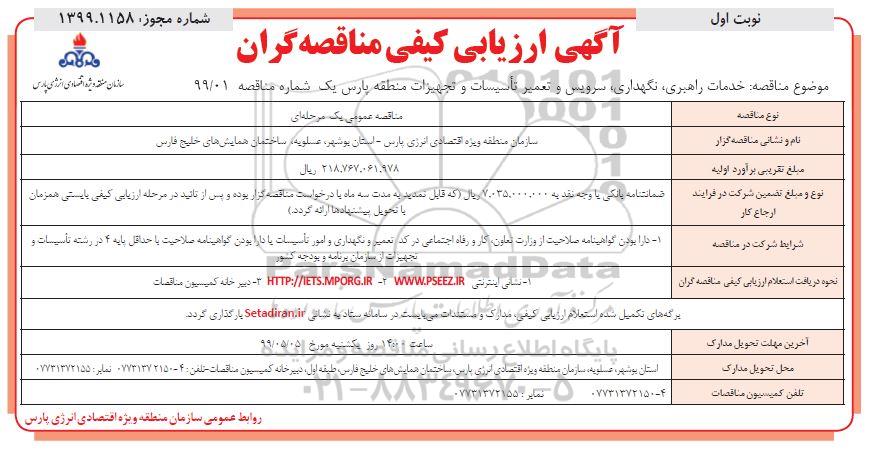 نوبت اول
شماره مجوز، ۱۳۹۹.۱۱۵۸
آگهی ارزیابی کیفی مناقصه‌گران
سازمان منطقه ویژه اقتصادی انرژی پارس
موضوع مناقصه: خدمات راهبری، نگهداری، سرویس و تعمیر تأسیسات و تجهیزات منطقه پارس یک شماره مناقصه ۹۹/۰۱
نوع مناقصه
مناقصه عمومی یک مرحله‌ای
نام و نشانی مناقصه‌گزار
سازمان منطقه ویژه اقتصادی انرژی پارس - استان بوشهر، عسلویه، ساختمان همایش‌های خلیج فارس
مبلغ تقریبی برآورد اولیه
۲۱۸.۷۶۷.۰۶۱.۹۷۸ ریال
نوع و مبلغ تضمین شرکت در فرایند
ارجاع کار
ضمانتنامه بانکی یا وجه نقد به ۷.۰۳۵.۰۰۰.۰۰۰ ریال (که قابل تمدید به مدت سه ماه با درخواست مناقصه‌گزار بوده و پس از تائید در مرحله ارزیابی کیفی بایستی همزمان
با تحویل پیشنهادها ارائه گردد.)
شرایط شرکت در مناقصه
۱- دارا بودن گواهینامه صلاحیت از وزارت تعاون، کار و رفاه اجتماعی در کد تعمیر و نگهداری و امور تأسیسات یا دارا بودن گواهینامه صلاحیت با حداقل پایه ۴ در رشته تأسیسات و
تجهیزات از سازمان برنامه و بودجه کشور
نحوه دریافت استعلام ارزیابی کیفی مناقصه گران
۱- نشانی اینترنتی WWW.PSEEZ.IR ۲- HTTP://IETS.MPORG.IR ۳- دبیر خانه کمیسیون مناقصات
برگه‌های تکمیل شده استعلام ارزیابی کیفی، مدارک و مستندات می‌بایست در سامانه ستاد به نشانی Setadiran.ir بارگذاری گردد.
آخرین مهلت تحویل مدارک
ساعت ۱۴:۰۰ روز یکشنبه مورخ ۹۹/۰۵/۰۵
محل تحویل مدارک
استان بوشهر، عسلویه، سازمان منطقه ویژه اقتصادی انرژی پارس، ساختمان همایش‌های خلیج فارس، طبقه اول، دبیرخانه کمیسیون مناقصات-تلفن: ۴-۰۷۷۳۱۳۷۲۱۵۰ نمابر: ۰۷۷۳۱۳۷۲۱۵۵
تلفن کمیسیون مناقصات
۰۷۷۳۱۳۷۲۱۵۰-۴ نمابر: ۰۷۷۳۱۳۷۲۱۵۵
روابط عمومی سازمان منطقه ویژه اقتصادی انرژی پارس
ParsNamadData
پایگاه اطلاع رسانی مناقصه و مزایده
۰۲۱-۸۸۳۴۹۶۷۰-۵